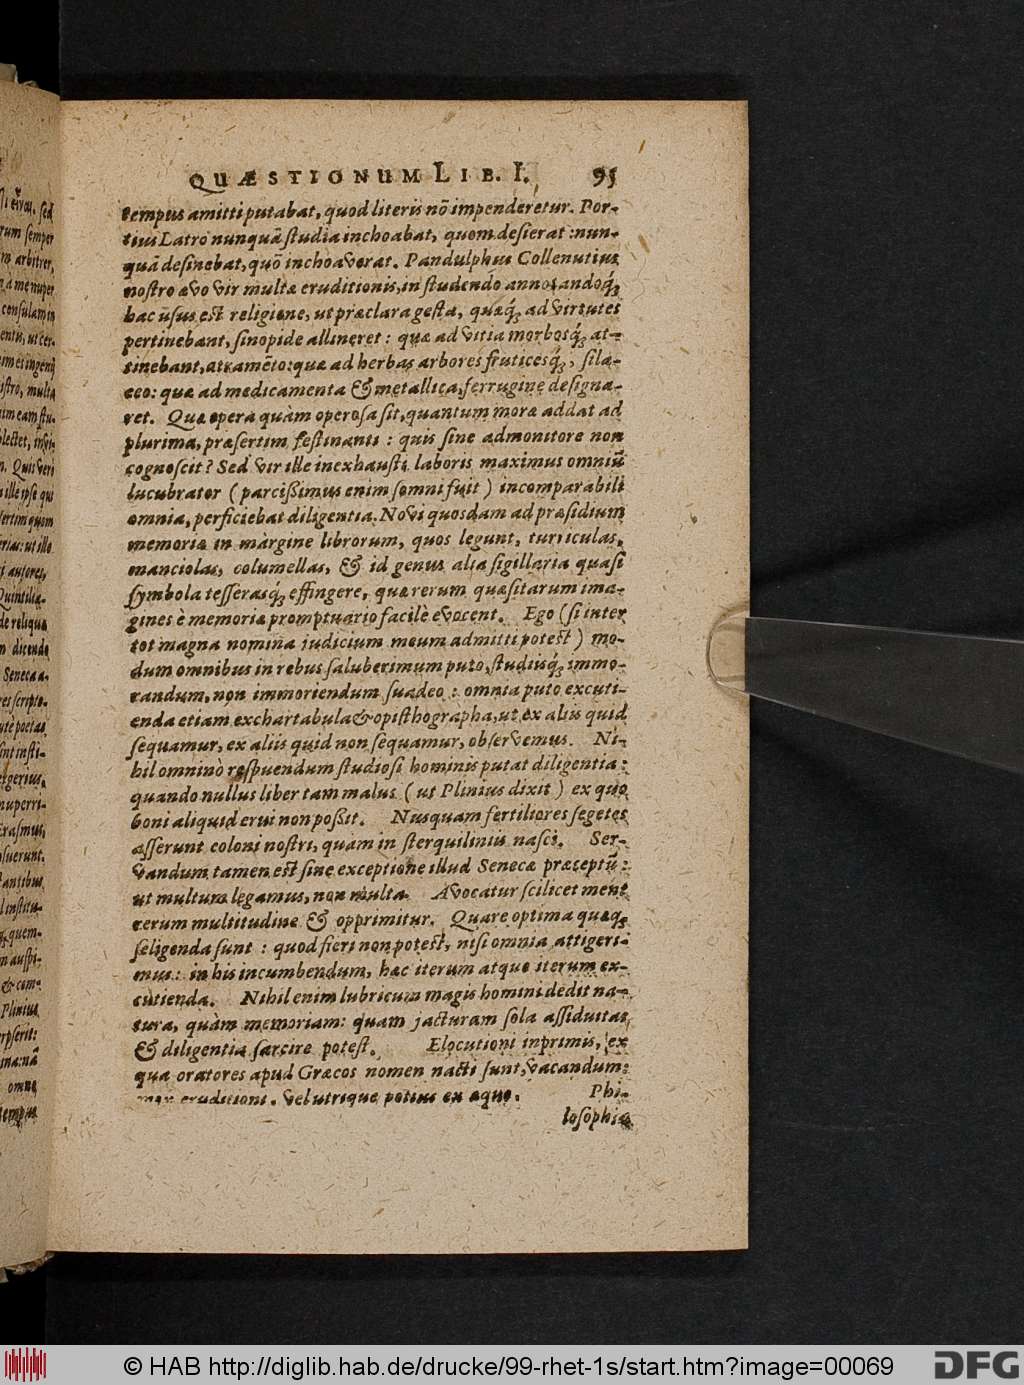 QUÆSTIONUM LIB. I. 95
tempus amitti putabat, quod literis nō impenderetur. Por-
tius Latro nunquā studia inchoabat, quom desierat: nun-
quā desinebat, quō inchoaverat. Pandulphus Collenutius
nostro ævo vir multæ eruditionis, in studendo annotandoq́;
hac usus est religione, ut præclara gesta, quæq́; ad virtutes
pertinebant, sinopide allineret: quæ ad vitia morbosq́; at-
tinebant, atramēto: quæ ad herbas arbores fruticesq́;, sila-
ceo: quæ ad medicamenta & metallica, ferrugine designa-
ret. Quæ opera quàm operosa sit, quantum moræ addat ad
plurima, præsertim festinanti: quis sine admonitore non
cognoscit? Sed vir ille inexhausti laboris maximus omniū
lucubrator (parcißimus enim somni fuit) incomparabili
omnia, perficiebat diligentia. Novi quosdam ad præsidium
memoriæ in màrgine librorum, quos legunt, turriculas,
manciolas, columellas, & id genus alia sigillaria quasi
symbola tesserasq́; effingere, quæ rerum quæsitarum ima-
gines è memoriæ promptuario facilè evocent. Ego (si inter
tot magna nomina judicium meum admitti potest) mo-
dum omnibus in rebus saluberimum puto, studiisq́; immo-
randum, non immoriendum suadeo: omnia puto excuti-
enda etiam exchartabula & opisthographa, ut ex aliis quid
sequamur, ex aliis quid non sequamur, observemus. Ni-
hil omninò respuendum studiosi hominis putat diligentia:
quando nullus liber tam malus (ut Plinius dixit) ex quo
boni aliquid erui non poßit. Nusquam fertiliores segetes
asserunt coloni nostri, quàm in sterquiliniis nasci. Ser-
vandum tamen est sine exceptione illud Senecæ præceptū:
ut multum legamus, non multa. Avocatur scilicet mens
rerum multitudine & opprimitur. Quare optima quæq́;
seligenda sunt: quod fieri non potest, nisi omnia attigeri-
mus: in his incumbendum, hæc iterum atque iterum ex-
cutienda. Nihil enim lubricum magis homini dedit na-
tura, quàm memoriam: quam jacturam sola assiduitas
& diligentia sarcire potest. Elocutioni inprimis, ex
qua oratores apud Græcos nomen nacti sunt, vacandum:
mox eruditioni. vel utrique potius ex æquo. Phi-
losophiæ
sed
rum semper
arbitrer,
à me nuper
consulam in
ut cer-
multa
Quis veri
ille ipse qui
ut illo
autores,
Quintilia-
de reliqua
dicendo
Seneca a-
scripto-
poetas
insti-
nuperri-
Erasmus,
quem-
auspi-
& com-
Plinius
omne
tempus
© HAB http://diglib.hab.de/drucke/99-rhet-1s/start.htm?image=00069
DFG